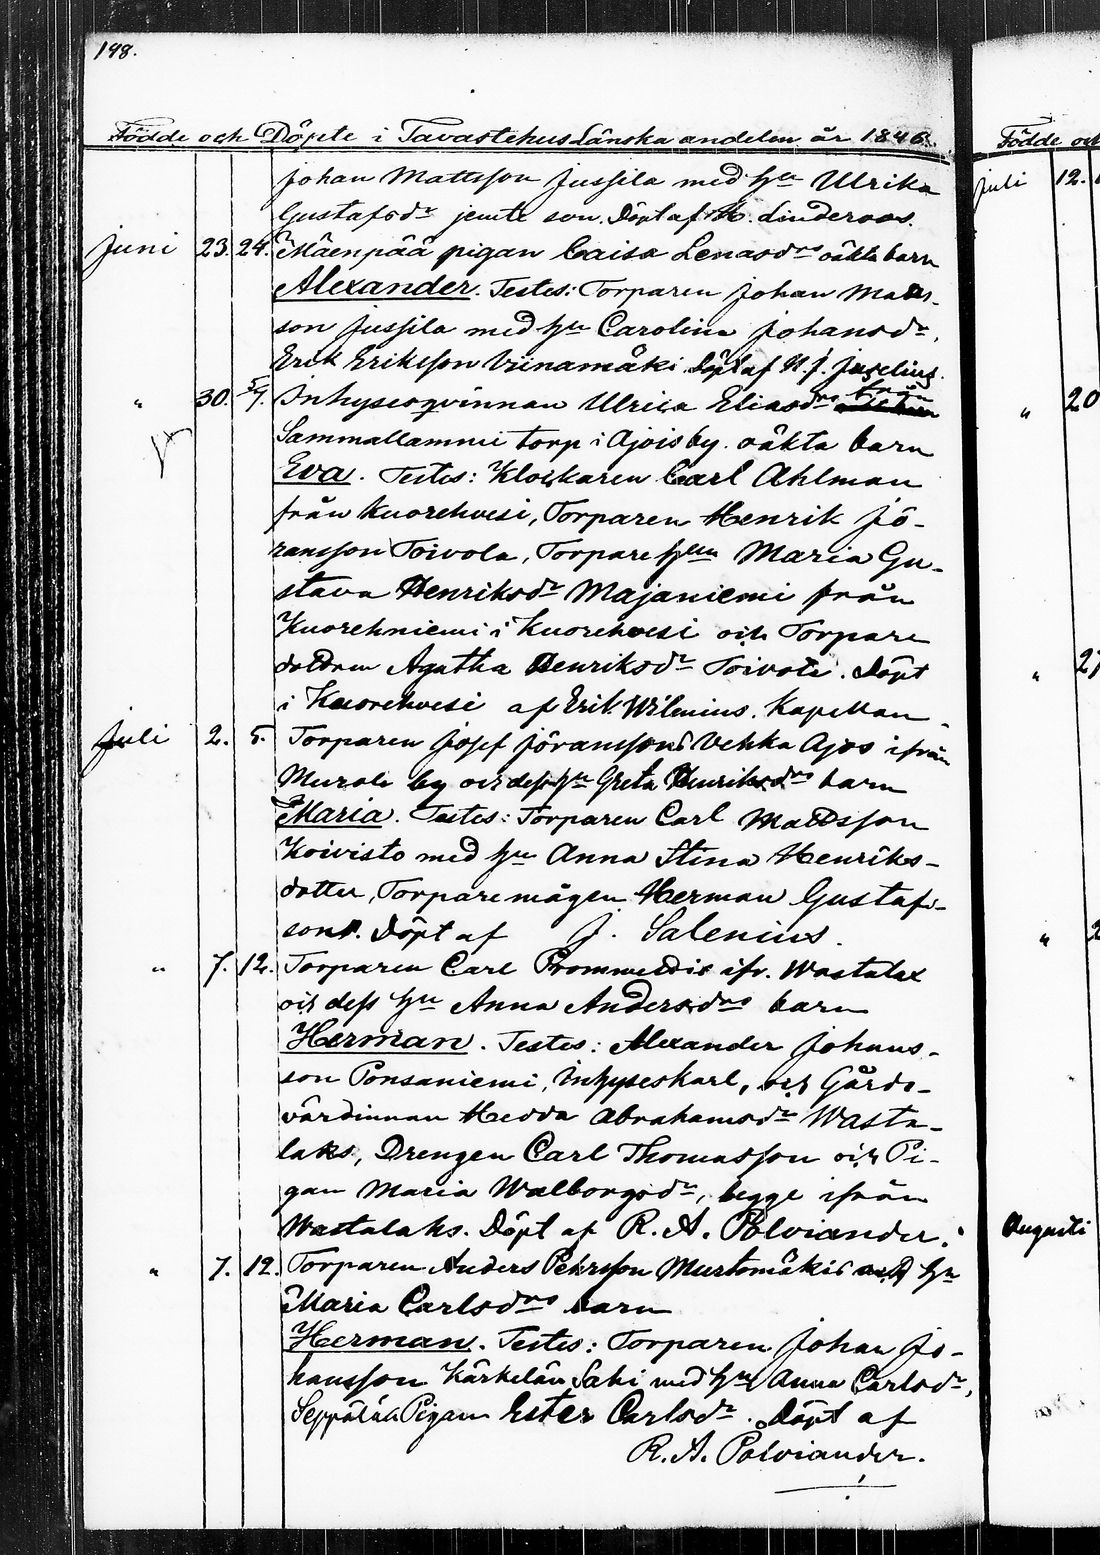 148.
Födde och Döpte i Tavastehus Länska andelen år 1846.
Johan Mattsson Jussila med hu Ulrika
Gustafsdr jemte son. Döpt af K. Linderoos.
Juni 23. 24. Mäenpää pigan Caisa Lenasdrs oäkta barn
Alexander. Testes: Torparen Johan Matts-
son Jussila med hu Carolina Johansdr,
Erik Eriksson Viinamäki. Döpt af N. J.
" 30. 5/7. Inhysesqvinnan Ulrica Eliasdrs från
Sammallammi torp i Ajois by. oäkta barn
Eva. Testes: Klockaren Carl Ahlman
från Kuorehvesi, Torparen Henrik Jö-
ransson Toivola, Torpare hun Maria Gu-
stava Henriksdr Majaniemi från
Kuorehniemi i Kuorehvesi och Torpare
dottren Agatha Henriksdr Döpt
i Kuorehvesi af Erik Wilenius. Kapellan.
Juli 2. 5. Torparen Josef Jöranssons Vehka Ajos ifrån
Murole by och dess hu Greta Henriksdrs barn
Maria. Testes: Torparen Carl Mattsson
Koivisto med hu Anna Stina Henriks-
dotter, Torparemågen Herman Gustafs-
son. Döpt af J. Salenius.
" 7. 12. Torparen Carl ifr. Wastalax
och dess hu Anna Andersdrs barn
Herman. Testes: Alexander Johans-
son Ponsaniemi, Inhyseskarl, och Gårds-
värdinnan Hedda Abrahamsdr Wasta-
laks, Drengen Carl Thomasson och Pi-
gan Maria Walborgsdr, begge ifrån
Wastalaks. Döpt af R. A. Polviander.
" 7. 12. Torparen Anders Pehrsson Murtomäkis och hu
Maria Carlsdrs barn
Herman. Testes: Torparen Johan Jo-
hansson Kärkelän Sahi med hu Anna Carlsdr,
Seppälä Pigan Ester Carlsdr. Döpt af
R. A. Polviander.
Födde och
Juli 12.
" 20
" 27
" 2
Augusti